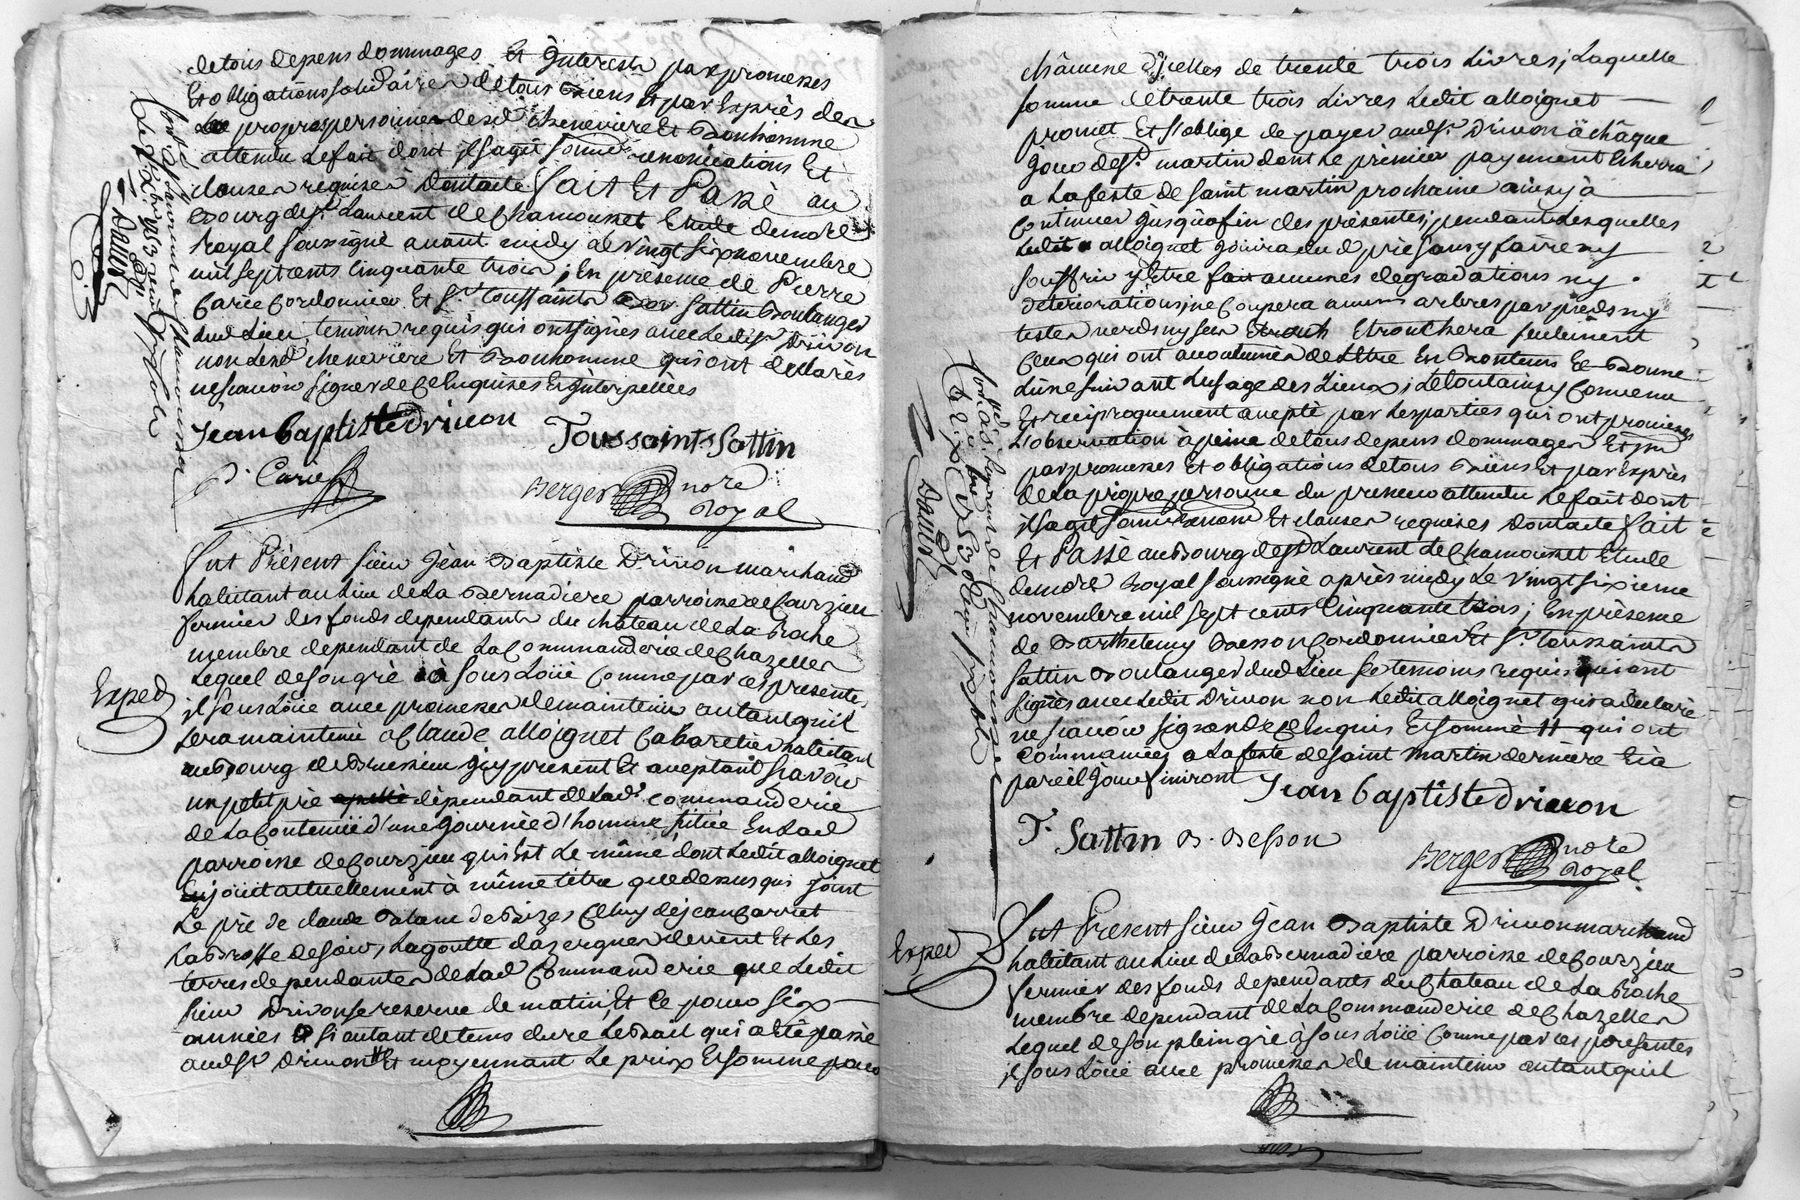 de tous depens dommages Et Interests par promesses
Et obligations solidaires de tous biens Et par Exprès des
propres personnes desd Chenevière Et Bonhomme
attendu le fait dont il sagit renonciations Et
clauses requises dontacte fait Et Passé au
Bourg de st Laurent de Chamousset Etude du notre
Royal soussigné avant midy le vingt six novembre
mil sept cents Cinquante trois ; En presence de Pierre
Carie Cordonnier Et sr. Toussaints Sattin Boulanger
dud Lieu, temoins requis qui ont signés avec ledit sr Drivon
non lesd Chenevière Et Bonhomme qui ont declarés
ne scavoir signer de ce Enquises Et Interpellées
Jean baptiste drivon
Toussaints Sattin
P. Carie
Berger notre
Royal
Fut Présent sieur Jean Baptiste Drivon marchand
habitant au lieu de La Bernadiere parroisse de Courzieu
fermier des fonds dependants du château de La Roche
membre dependant de La Commanderie de Chazelles
Lequel de son gré à sous Loüé Comme par ces presentes
Exped
il sous Loüe avec promesses de maintenir autant quil
sera maintenü a Claude alloignet Cabaretier habitant
au bourg de Brussieu Icy present Et aceptant scavoir
un petit pré dépendant de lad. commanderie
de la Contenüe d'une Journée d'homme sitüé En lad
parroisse de Courzieu qui Est le même dont ledit alloignet
Enjoüit actuellement à même titre que dessus qui joint
Le pré de claude de Celluy de jean Carret
La Brosse de soir, La goutte dazergues de vent Et les
terres dependantes de lad Commanderie que ledit
sieur Drivon se reserve de matin, Et Ce pour six
années si autant de tems dure le Bail qui a été passé
audsr Drivon Et moyennant Le prix Et somme pour
châcune d'icelles de trente trois Livres ; Laquelle
somme de trente trois Livres ledit alloignet
promet Et s'oblige de payer audsr Drivon à châque
jour de st martin dont le premier payement Echerra
a La feste de saint martin prochaine ainsy à
Continuer jusqu'à fin des présentes ; pendant Lesquelles
ledit alloignet joüira du d pré sans y faire ny
souffrir y Etre fait aucunes degradations ny
deteriorations, ne Coupera aucuns arbres par pieds ny
testes verds ny secs Etrouchera seulement
Ceux qui ont accoutumés de Lêtre En tems Et Bonne
Lüne suivant Lusage des Lieux ; Le tout ainsy Convenu
Et reciproquement accepté par Les parties qui ont promises
L'observation à peine de tous depens dommages Et
par promesses Et obligations de tous Biens Et par Exprès
de La propre personne du preneur attendu le fait dont
il sagit Et clauses requises dontacte fait
Et Passé au Bourg de st Laurent de Chamousset Etude
du notre Royal soussigné après midy Le vingt sixieme
novembre mil sept cents Cinquante trois ; En présence
de Barthelemy Besson Cordonnier Et sr. Toussaints
Sattin Boulanger dud Lieu temoins requis qui ont
signés avec ledit Drivon non ledit alloignet qui a declaré
ne scavoir signer de ce Enquis Et sommé qui ont
Commancées a La feste de saint martin derniere Et à
pareil Jour finiront
Jean baptiste drivon
T. Sattin B. Besson
Berger notre
Royal
Fut Present sieur Jean Baptiste Drivon marchand
Exped
habitant au lieu de La Bernadiere parroisse de Courzieu
fermier des fonds dependants du Chateau de La Roche
membre dependant de La Commanderie de Chazelles
Lequel de son plein gré à sous Loüé Comme par ces presentes
il sous Loüe avec promesses de maintenir autant quil